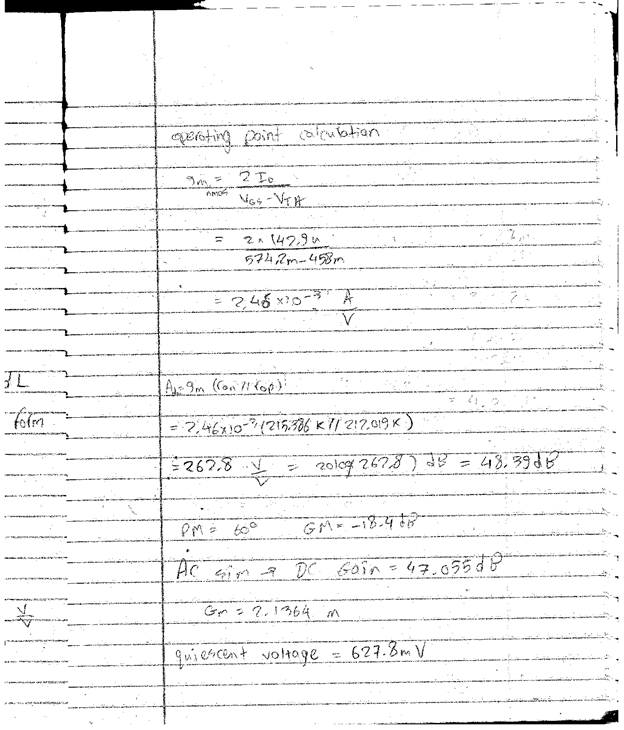 operating point calculation
gm nmos = 2 ID / VGS - VTH
= 2 x 142.9u / 574.2m - 458m
= 2.46 x 10^-3 A/V
dL
Av = gm (ron // rop)
form
= 2.46x10^-3 (215.386 K // 217.019 K)
= 267.8 V/V = 20log(267.8) dB = 48.39dB
PM = 60° GM = -18.4 dB
AC sim → DC Gain = 47.055dB
V/V
Gm = 2.1364 m
quiescent voltage = 627.8mV